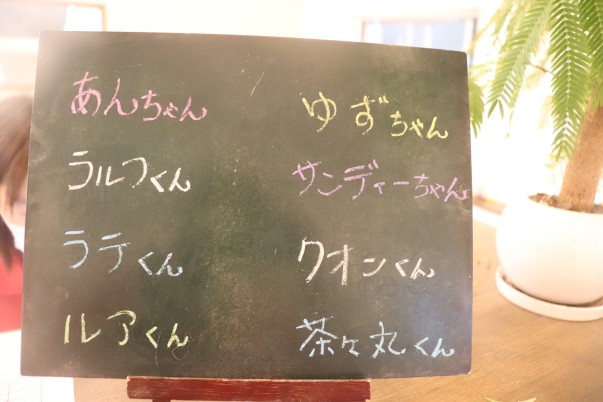 あんちゃん
ラルフくん
ラテくん
ルアくん
ゆずちゃん
サンディーちゃん
クオンくん
茶々丸くん